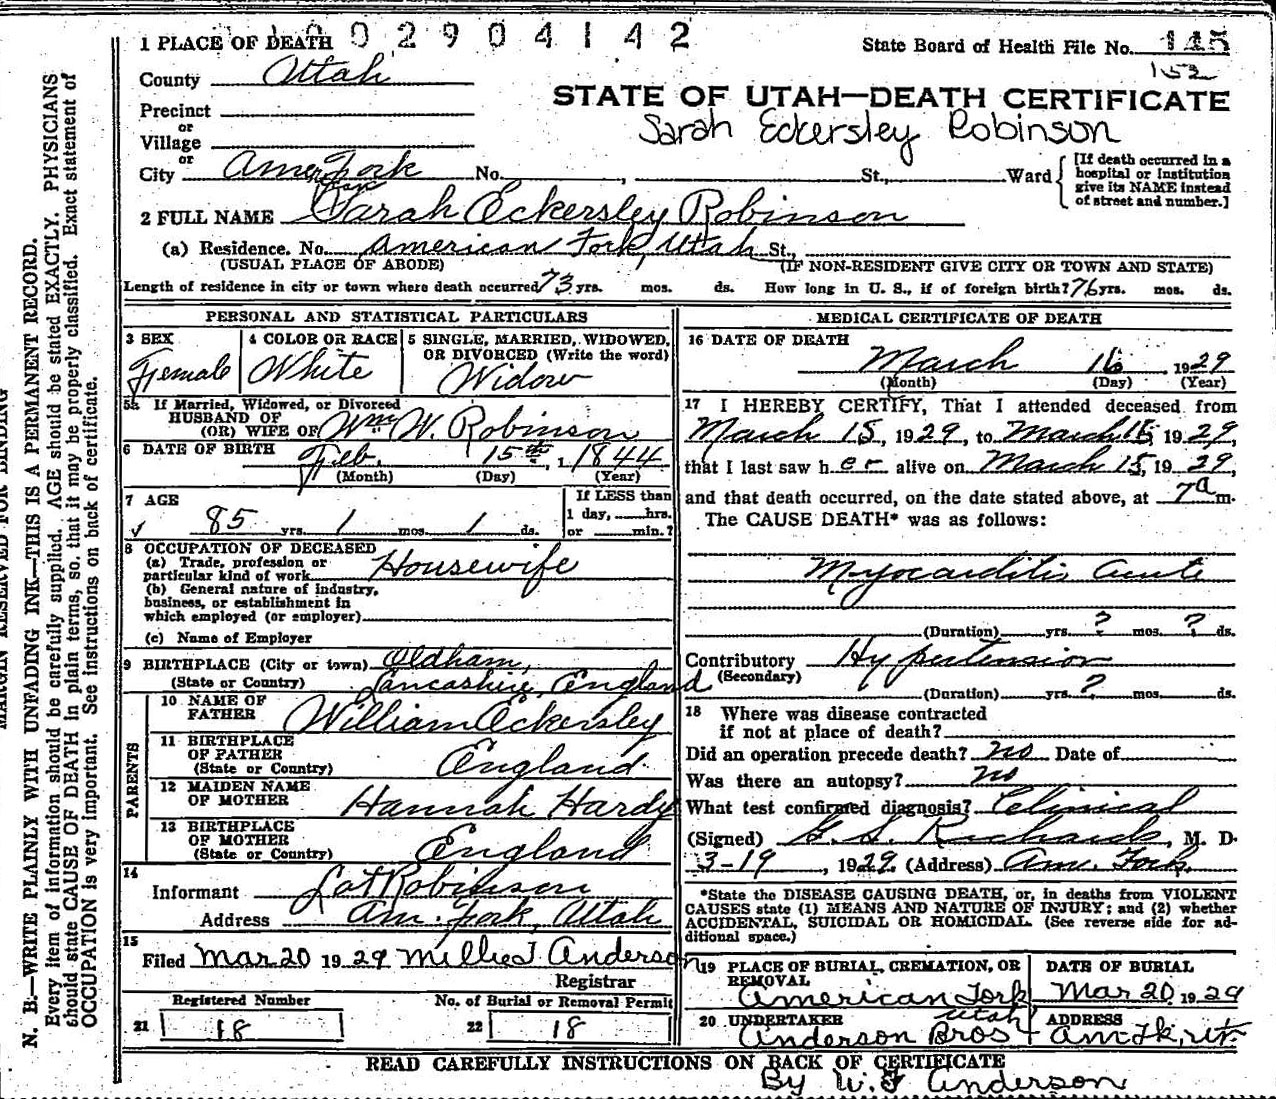 1 PLACE OF DEATH 1 0 0 2 9 0 4 1 4 2
State Board of Health File No. 145
152
County Utah
STATE OF UTAH—DEATH CERTIFICATE
Sarah Eckersley Robinson
Precinct
or
Village
or
City Amer. Fork No. , St., Ward
[If death occurred in a hospital or institution give its NAME instead of street and number.]
2 FULL NAME Sarah Eckersley Robinson
(a) Residence. No. American Fork, Utah St.,
(USUAL PLACE OF ABODE) (IF NON-RESIDENT GIVE CITY OR TOWN AND STATE)
Length of residence in city or town where death occurred 73 yrs. mos. ds. How long in U. S., if of foreign birth? 76 yrs. mos. ds.
PERSONAL AND STATISTICAL PARTICULARS
3 SEX
Female
4 COLOR OR RACE
White
5 SINGLE, MARRIED, WIDOWED, OR DIVORCED (Write the word)
Widow
5a If Married, Widowed, or Divorced
HUSBAND OF
(OR) WIFE OF Wm W. Robinson
6 DATE OF BIRTH Feb. 15th, 1 1844
(Month) (Day) (Year)
7 AGE
85 yrs. 1 mos. 1 ds.
If LESS than
1 day, hrs.
or min.?
8 OCCUPATION OF DECEASED
(a) Trade, profession or
particular kind of work Housewife
(b) General nature of industry,
business, or establishment in
which employed (or employer)
(c) Name of Employer
9 BIRTHPLACE (City or town) Oldham,
(State or Country) Lancashire, England
PARENTS
10 NAME OF
FATHER William Eckersley
11 BIRTHPLACE
OF FATHER
(State or Country) England
12 MAIDEN NAME
OF MOTHER Hannah Hardy
13 BIRTHPLACE
OF MOTHER
(State or Country) England
14
Informant Lot Robinson
Address Am. Fork, Utah
15
Filed Mar 20 1929 Millie J Anderson
Registrar
Registered Number
21 18
No. of Burial or Removal Permit
22 18
MEDICAL CERTIFICATE OF DEATH
16 DATE OF DEATH
March 16, 1929
(Month) (Day) (Year)
17 I HEREBY CERTIFY, That I attended deceased from
March 15, 1929, to March 15 1929,
that I last saw her alive on March 15, 1929,
and that death occurred, on the date stated above, at 7a m.
The CAUSE DEATH* was as follows:
Myocarditis acute
(Duration) yrs. ? mos. ? ds.
Contributory Hypertension
(Secondary)
(Duration) yrs. ? mos. ds.
18 Where was disease contracted
if not at place of death?
Did an operation precede death? no Date of
Was there an autopsy? no
What test confirmed diagnosis? Clinical
(Signed) G. S. Richards, M. D.
3-19, 1929. (Address) Am. Fork.
*State the DISEASE CAUSING DEATH, or, in deaths from VIOLENT
CAUSES state (1) MEANS AND NATURE OF INJURY; and (2) whether
ACCIDENTAL, SUICIDAL OR HOMICIDAL. (See reverse side for ad-
ditional space.)
19 PLACE OF BURIAL, CREMATION, OR
REMOVAL
American Fork
Utah
DATE OF BURIAL
Mar 20, 1929
20 UNDERTAKER
Anderson Bros
ADDRESS
Am Fk, Ut.
READ CAREFULLY INSTRUCTIONS ON BACK OF CERTIFICATE
By W. J Anderson
MARGIN RESERVED FOR BINDING
N. B.—WRITE PLAINLY WITH UNFADING INK—THIS IS A PERMANENT RECORD.
Every item of information should be carefully supplied. AGE should be stated EXACTLY. PHYSICIANS
should state CAUSE OF DEATH in plain terms, so that it may be properly classified. Exact statement of
OCCUPATION is very important. See instructions on back of certificate.